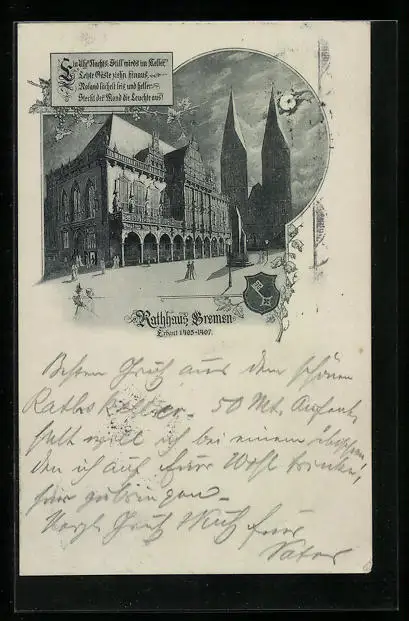 Ein Uhr Nachts. Still wirds im Keller,
Letzte Gäste ziehn hinaus,
Roland lächelt leis und heller
Steckt der Mond die Leuchte aus!
Rathhaus Bremen
Erbaut 1405-1407.
Besten Gruß aus dem schönen
Rathskeller. 50 Mt. Aufent-
halt will ich bei einem
den ich auf Euer Wohl trinke,
hier zubringen.
Herzl. Gruß Euer
Vater